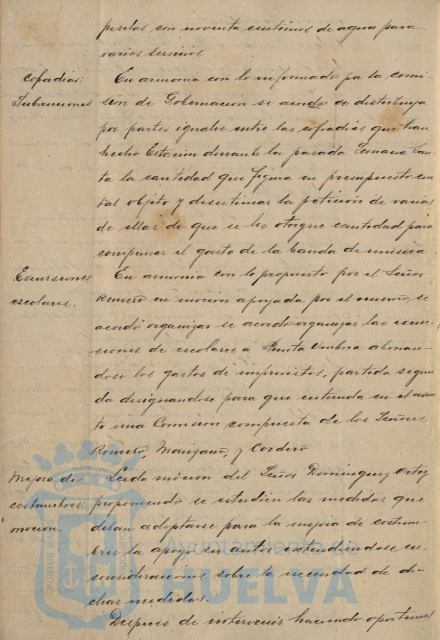 pesetas con noventa centimos de agua para
varios servicios
Cofradias:
Subvenciones
En armonia con lo informado pa la comi
sion de Gobernacion se acordo se distribuya
por partes iguales entre las cofradias que han
hecho Estacion durante la pasada Semana San
ta la cantidad que figura en presupuesto con
tal objeto y desestimar la peticion de varias
de ellas de que se les otorgue cantidad para
compensar el gasto de la banda de musica.
Excursiones
escolares.
En armonia con lo propuesto por el Señor
Romero en mocion apoyada por el mismo, se
acordó organizar se acordo organizar las excur-
siones de escolares a Punta Umbria abonan-
dose los gastos de imprevistos, partida segun
da designandose para que entienda en el asun
to una Comision compuesta de los Señores
Romero, Manzano, y Cordero
Mejora de
costumbres:
mocion.
Leida mocion del Señor Dominguez Ortiz
proponiendo se estudien las medidas que
deban adoptarse para la mejora de costum-
bres la apoya su autor extendiendose en
consideraciones sobre la necesidad de di-
chas medidas.
Despues de intervenir haciendo oportunas
Ayuntamiento de
HUELVA